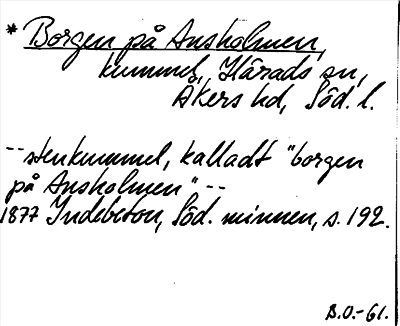 * Borgen på Ansholmen,
kummel, Härads sn,
Åkers hd, Söd. l.
-- stenkummel, kalladt "borgen
på Ansholmen" --
1877 Indebetou, Söd. minnen, s. 192.
B.O.-61.